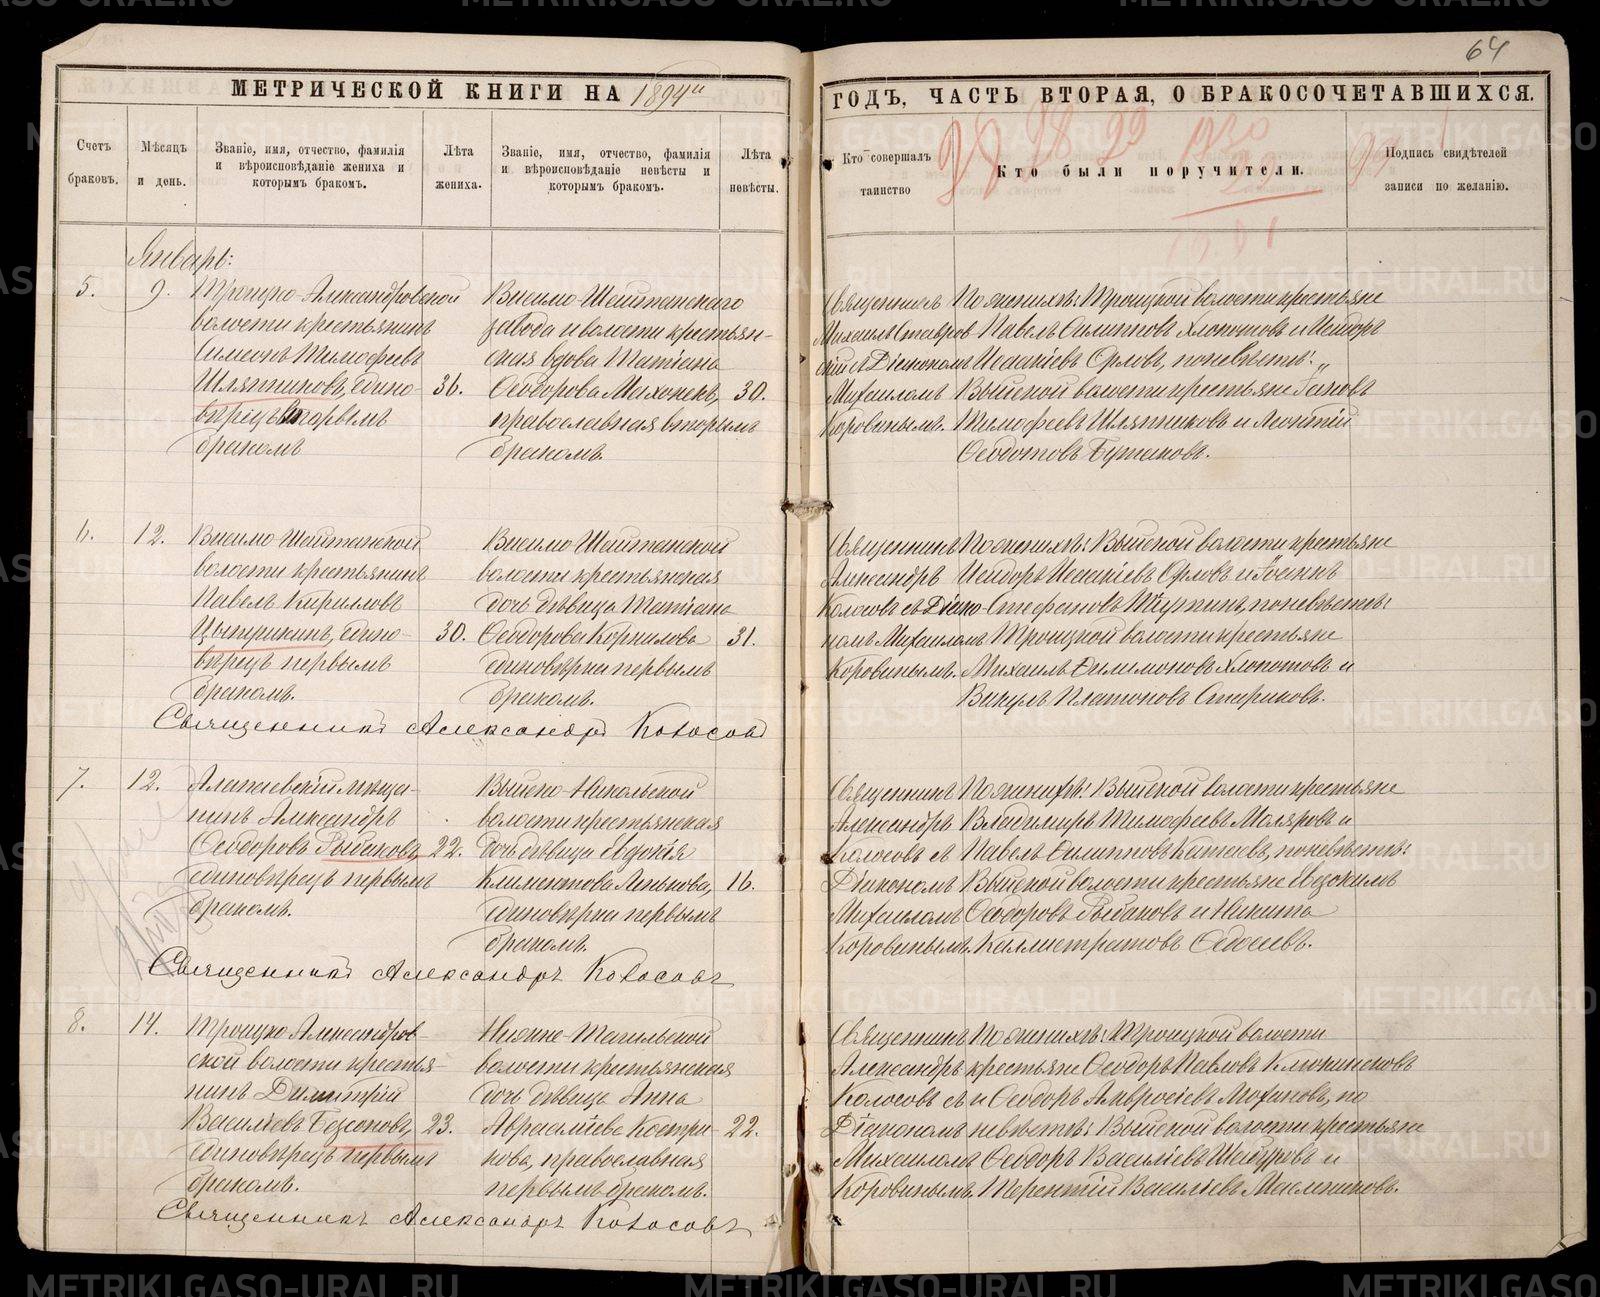 64
МЕТРИЧЕСКОЙ КНИГИ НА 1894й
ГОДЪ, ЧАСТЬ ВТОРАЯ, О БРАКОСОЧЕТАВШИХСЯ.
Счетъ браковъ.
Мѣсяцъ и день.
Званіе, имя, отчество, фамилія
и вѣроисповѣданіе жениха и
которымъ бракомъ.
Лѣта жениха.
Званіе, имя, отчество, фамилія
и вѣроисповѣданіе невѣсты и
которымъ бракомъ.
Лѣта невѣсты.
Кто совершалъ таинство
Кто были поручители.
Подпись свидѣтелей
записи по желанію.
Январь:
5.
9.
Троицко-Александровской
волости крестьянинъ
Симеонъ Тимофеевъ
Шляпниковъ, едино-
вѣрецъ вторымъ
бракомъ
36.
Висимо-Шайтанскаго
завода и волости крестьян-
ская вдова Татіана
Ѳеодорова Махонекъ,
православная вторымъ
бракомъ.
30.
Священникъ
Михаилъ Ставров
скій съ Діакономъ
Михаиломъ
Коровинымъ.
По женихѣ: Троицкой волости крестьяне
Павелъ Филипповъ Хлопотовъ и Исидоръ
Исаакіевъ Орловъ, по невѣстѣ:
Выйской волости крестьяне Іаковъ
Тимофеевъ Шляпниковъ и Леонтій
Ѳеодотовъ Бутаковъ.
6.
12.
Висимо-Шайтанской
волости крестьянинъ
Павелъ Кирилловъ
Цытрикинъ, едино-
вѣрецъ первымъ
бракомъ.
30.
Висимо-Шайтанской
волости крестьянская
дочь дѣвица Татіана
Ѳеодорова Корнилова
единовѣрка первымъ
бракомъ.
31.
Священникъ
Александръ
Колосовъ съ Діако-
номъ Михаиломъ
Коровинымъ.
По женихѣ: Выйской волости крестьяне
Исидоръ Исаакіевъ Орловъ и Іоаннъ
Стефановъ по невѣстѣ:
Троицкой волости крестьяне
Михаилъ Филимоновъ Хлопотовъ и
Викулъ Платоновъ Стариковъ.
Священникъ Александръ Колосовъ
7.
12.
Алапаевскій мѣща-
нинъ Александръ
Ѳеодоровъ Рыбаковъ,
единовѣрецъ первымъ
бракомъ.
22.
Выйско-Никольской
волости крестьянская
дочь дѣвица Евдокія
Климентова Ленькова,
единовѣрка первымъ
бракомъ.
16.
Священникъ
Александръ
Колосовъ съ
Діакономъ
Михаиломъ
Коровинымъ.
По женихѣ: Выйской волости крестьяне
Владимиръ Тимофеевъ Маляровъ и
Павелъ Филипповъ Катаевъ, по невѣстѣ:
Выйской волости крестьяне Евдокимъ
Ѳеодоровъ Рыбаковъ и Никита
Каллистратовъ Ѳедосѣевъ.
Священникъ Александръ Колосовъ
8.
14.
Троицко-Александров-
ской волости крестья-
нинъ Димитрій
Василіевъ Безсоновъ,
единовѣрецъ первымъ
бракомъ.
23.
Нижне-Тагильской
волости крестьянская
дочь дѣвица Анна
Авраамлева Костри-
кова, православная
первымъ бракомъ.
22.
Священникъ
Александръ
Колосовъ съ
Діакономъ
Михаиломъ
Коровинымъ.
По женихѣ: Троицкой волости
крестьяне Ѳеодоръ Павловъ
и Ѳеодоръ по
невѣстѣ: Выйской волости крестьяне
Ѳеодоръ Василіевъ и
Терентій Василіевъ Масленниковъ.
Священникъ Александръ Колосовъ
METRIKI.GASO-URAL.RU